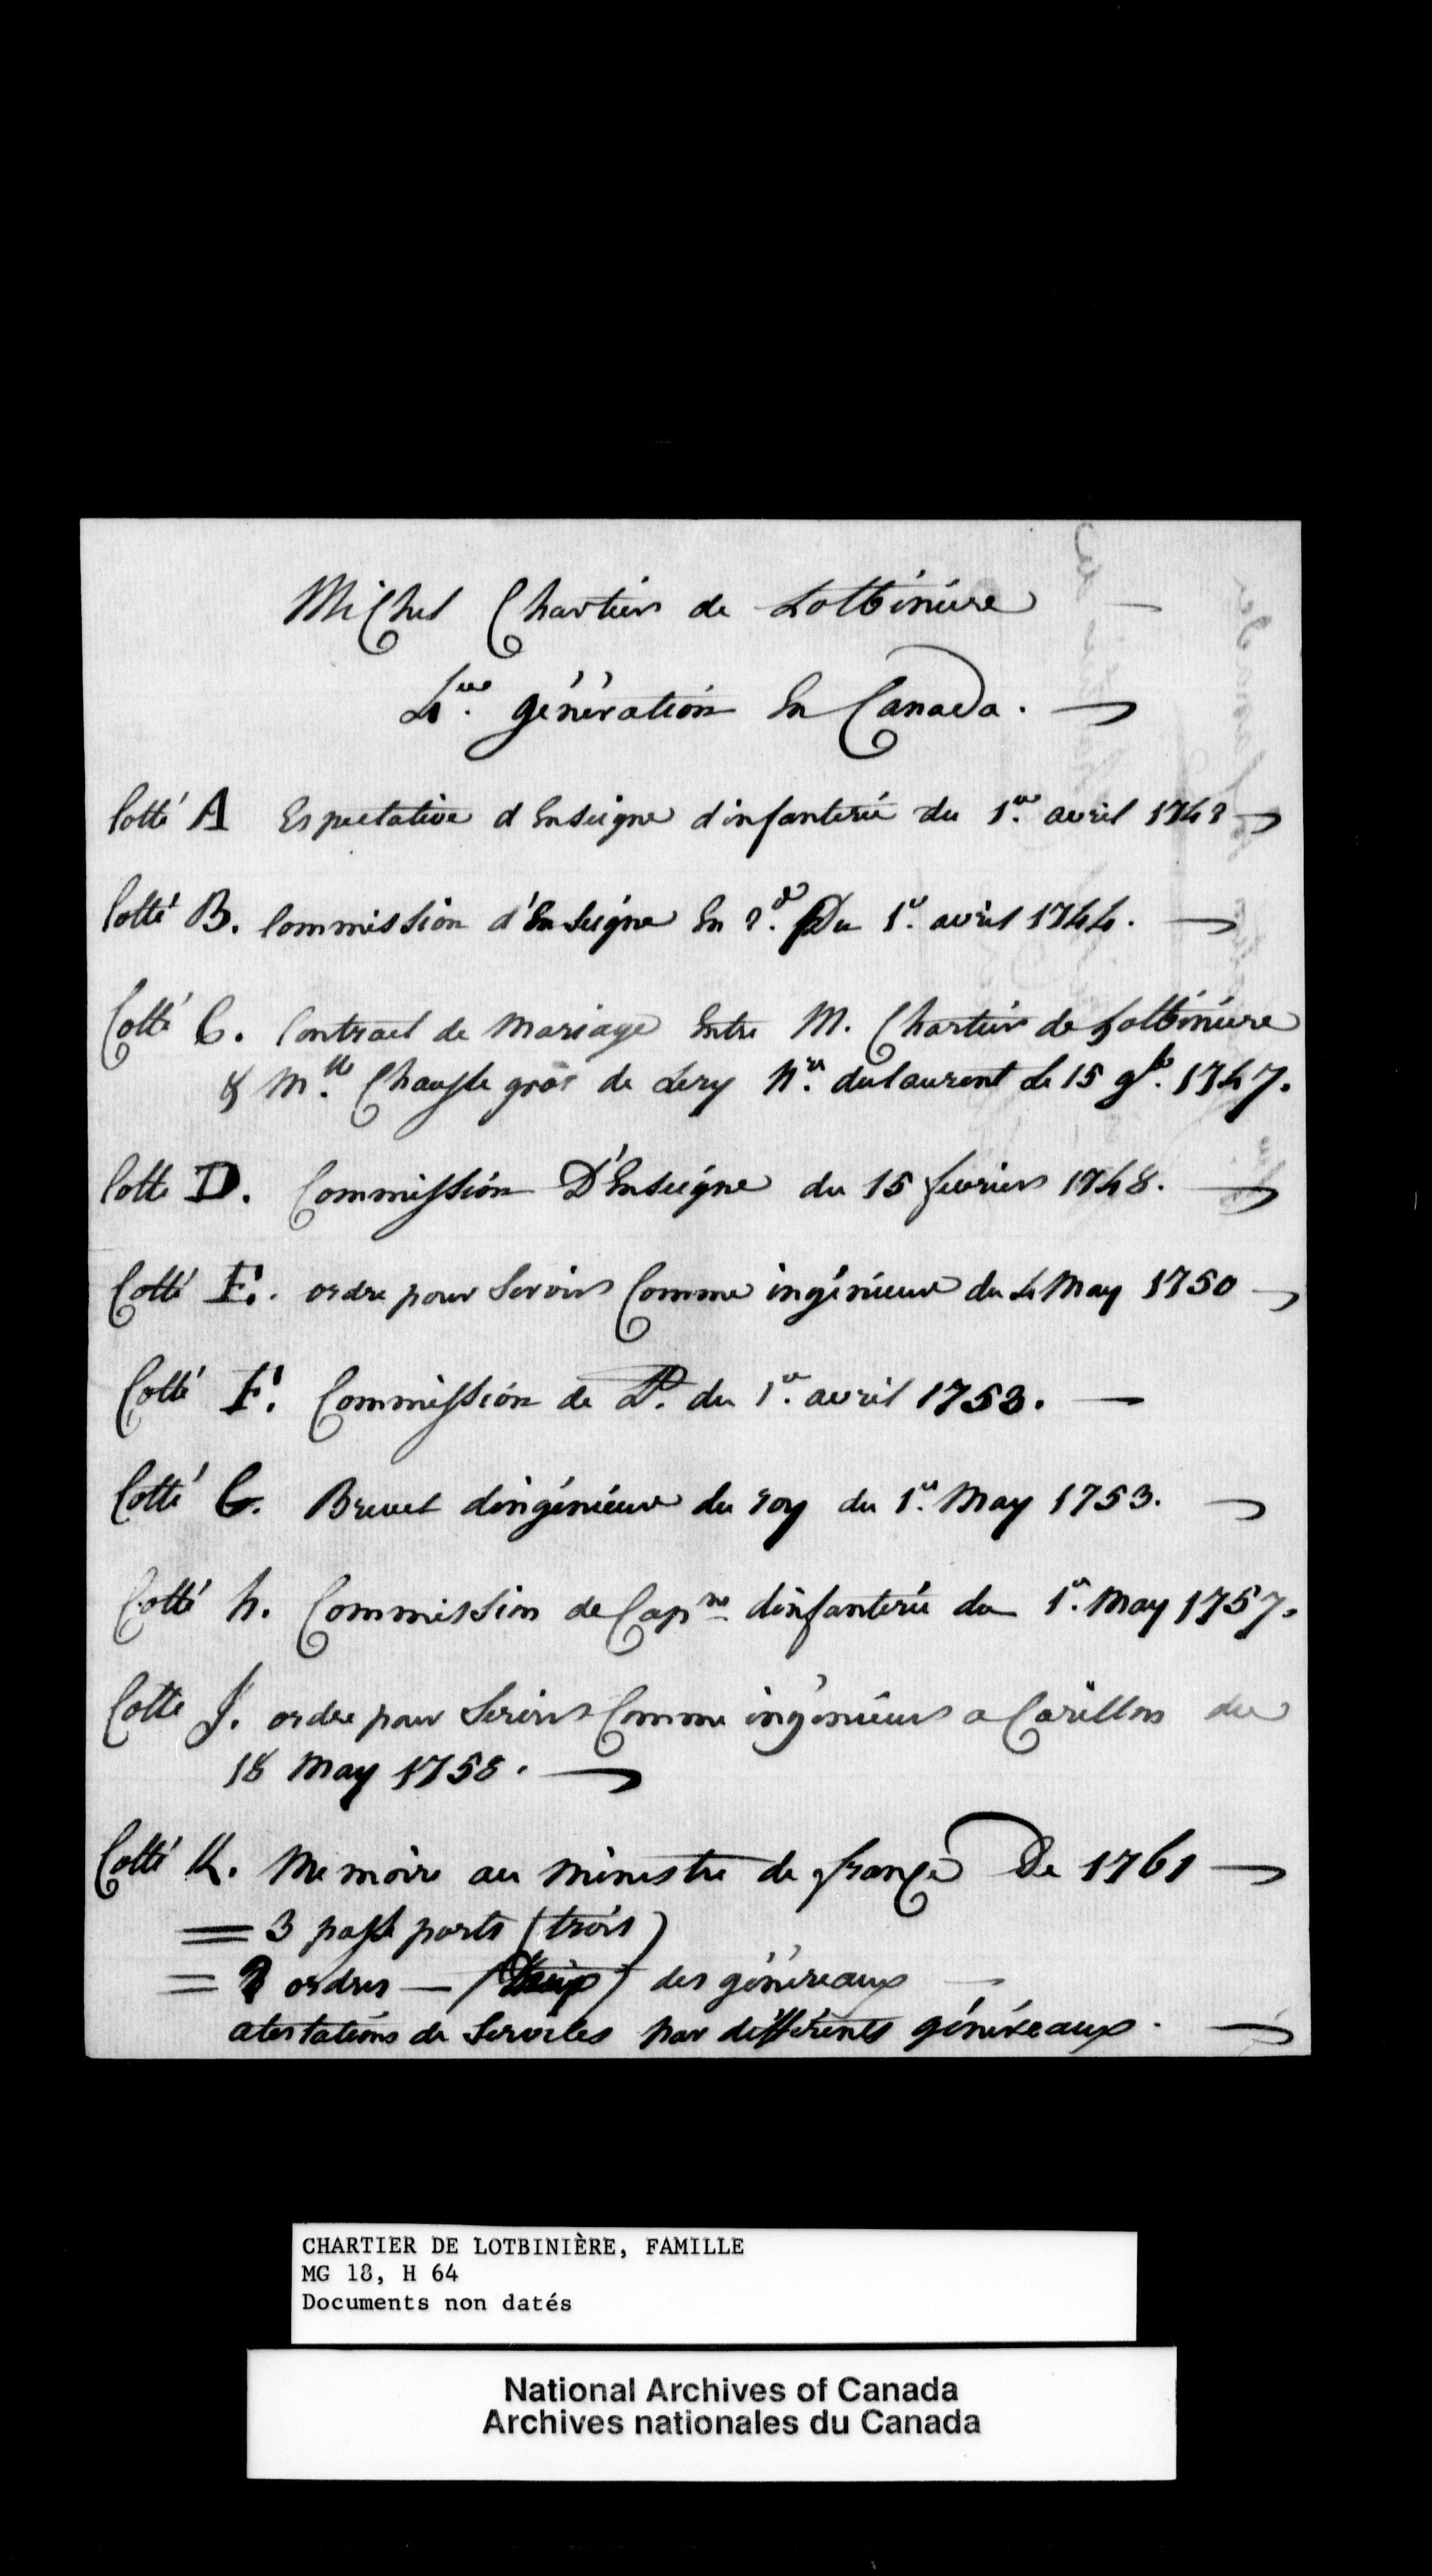 Michel Chartier de Lotbiniere
4me. génération En Canada.
Cotté A Expectative d Enseigne d'infanterie du 1er. avril 1742
Cotté B. Commission d'Enseigne En 2d. Du 1er. avril 1744.
Cotté C. Contract de Mariage Entre M. Chartier de Lotbiniere
& Mlle. Chausse gros de Lery Nre. dulaurent Le 15 9b. 1747.
Cotte D. Commission D'Enseigne du 15 fevrier 1748.
Cotté E. ordre pour Servir Comme ingénieur du 4 May 1750
Cotté F. Commission de Lt. du 1er. avril 1753.
Cotté G. Brevet dingénieur du roy du 1er. May 1753.
Cotté h. Commission de Capne dinfanterie du 1er. May 1757.
Cotte J. ordre pour Servir Comme ingénieur a Carillon du
18 May 1758.
Cotté K. Memoire au Ministre de france De 1761
= 3 passe ports (trois)
= 2 ordres — (Deux) des généreaux
atestations de Services par différents généreaux.
CHARTIER DE LOTBINIÈRE, FAMILLE
MG 18, H 64
Documents non datés
National Archives of Canada
Archives nationales du Canada